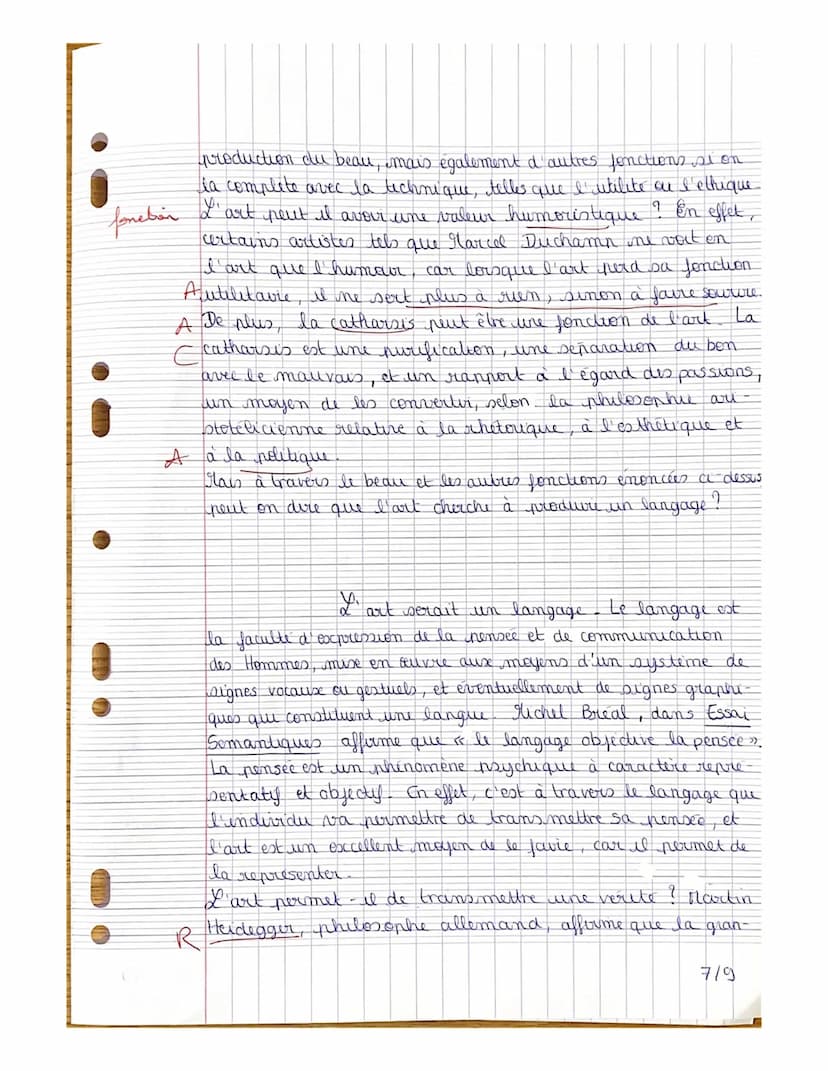 production du beau, mais également d'autres fonctions si on
la complète avec la technique, telles que l'utilité ou l'éthique
fonction L'art peut il avoir une valeur humoristique ? En effet,
certains artistes tels que Marcel Duchamp ne voit en
l'art que l'humour, car lorsque l'art perd sa fonction
A utilitaire, il ne sert plus à rien, sinon à faire sourire.
A De plus, la catharsis peut être une fonction de l'art. La
C catharsis est une purification, une séparation du bon
avec le mauvais, et un rapport à l'égard des passions,
un moyen de les convertir, selon la philosophie ari-
stotélicienne relative à la rhétorique, à l'esthétique et
A à la politique.
Mais à travers le beau et les autres fonctions énoncées ci-dessus
peut on dire que l'art cherche à produire un langage ?
L'art serait un langage. Le langage est
la faculté d'expression de la pensée et de communication
des Hommes, mise en œuvre aux moyens d'un système de
signes vocaux ou gestuels, et éventuellement de signes graphi-
ques qui constituent une langue. Michel Bréal, dans Essai
Semantiques affirme que « le langage objective la pensée ».
La pensée est un phénomène psychique à caractère repré-
sentatif et objectif. En effet, c'est à travers le langage que
l'individu va permettre de transmettre sa pensée, et
l'art est un excellent moyen de le faire, car il permet de
la représenter.
L'art permet-il de transmettre une vérité ? Martin
R Heidegger, philosophe allemand, affirme que la gran-
7/9